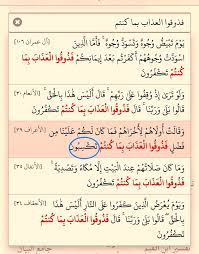 فذوقوا العذاب بما كنتم
يَوْمَ تَبْيَضُّ وُجُوهٌ وَتَسْوَدُّ وُجُوهٌ ۚ فَأَمَّا الَّذِينَ [آل عمران ١٠٦]
اسْوَدَّتْ وُجُوهُهُمْ أَكَفَرْتُمْ بَعْدَ إِيمَانِكُمْ فَذُوقُوا الْعَذَابَ بِمَا
كُنْتُمْ تَكْفُرُونَ
وَلَوْ تَرَىٰ إِذْ وُقِفُوا عَلَىٰ رَبِّهِمْ ۚ قَالَ أَلَيْسَ هَٰذَا [الأنعام ٣٠]
بِالْحَقِّ ۚ قَالُوا بَلَىٰ وَرَبِّنَا ۚ قَالَ فَذُوقُوا الْعَذَابَ بِمَا كُنْتُمْ تَكْفُرُونَ
وَقَالَتْ أُولَاهُمْ لِأُخْرَاهُمْ فَمَا كَانَ لَكُمْ عَلَيْنَا مِنْ [الأعراف ٣٩]
فَضْلٍ فَذُوقُوا الْعَذَابَ بِمَا كُنْتُمْ تَكْسِبُونَ
وَمَا كَانَ صَلَاتُهُمْ عِنْدَ الْبَيْتِ إِلَّا مُكَاءً وَتَصْدِيَةً ۚ [الأنفال ٣٥]
فَذُوقُوا الْعَذَابَ بِمَا كُنْتُمْ تَكْفُرُونَ
وَيَوْمَ يُعْرَضُ الَّذِينَ كَفَرُوا عَلَى النَّارِ أَلَيْسَ هَٰذَا [الأحقاف ٣٤]
بِالْحَقِّ ۖ قَالُوا بَلَىٰ وَرَبِّنَا ۚ قَالَ فَذُوقُوا الْعَذَابَ بِمَا كُنْتُمْ تَكْفُرُونَ
جامع البيان تفسير ابن القيم